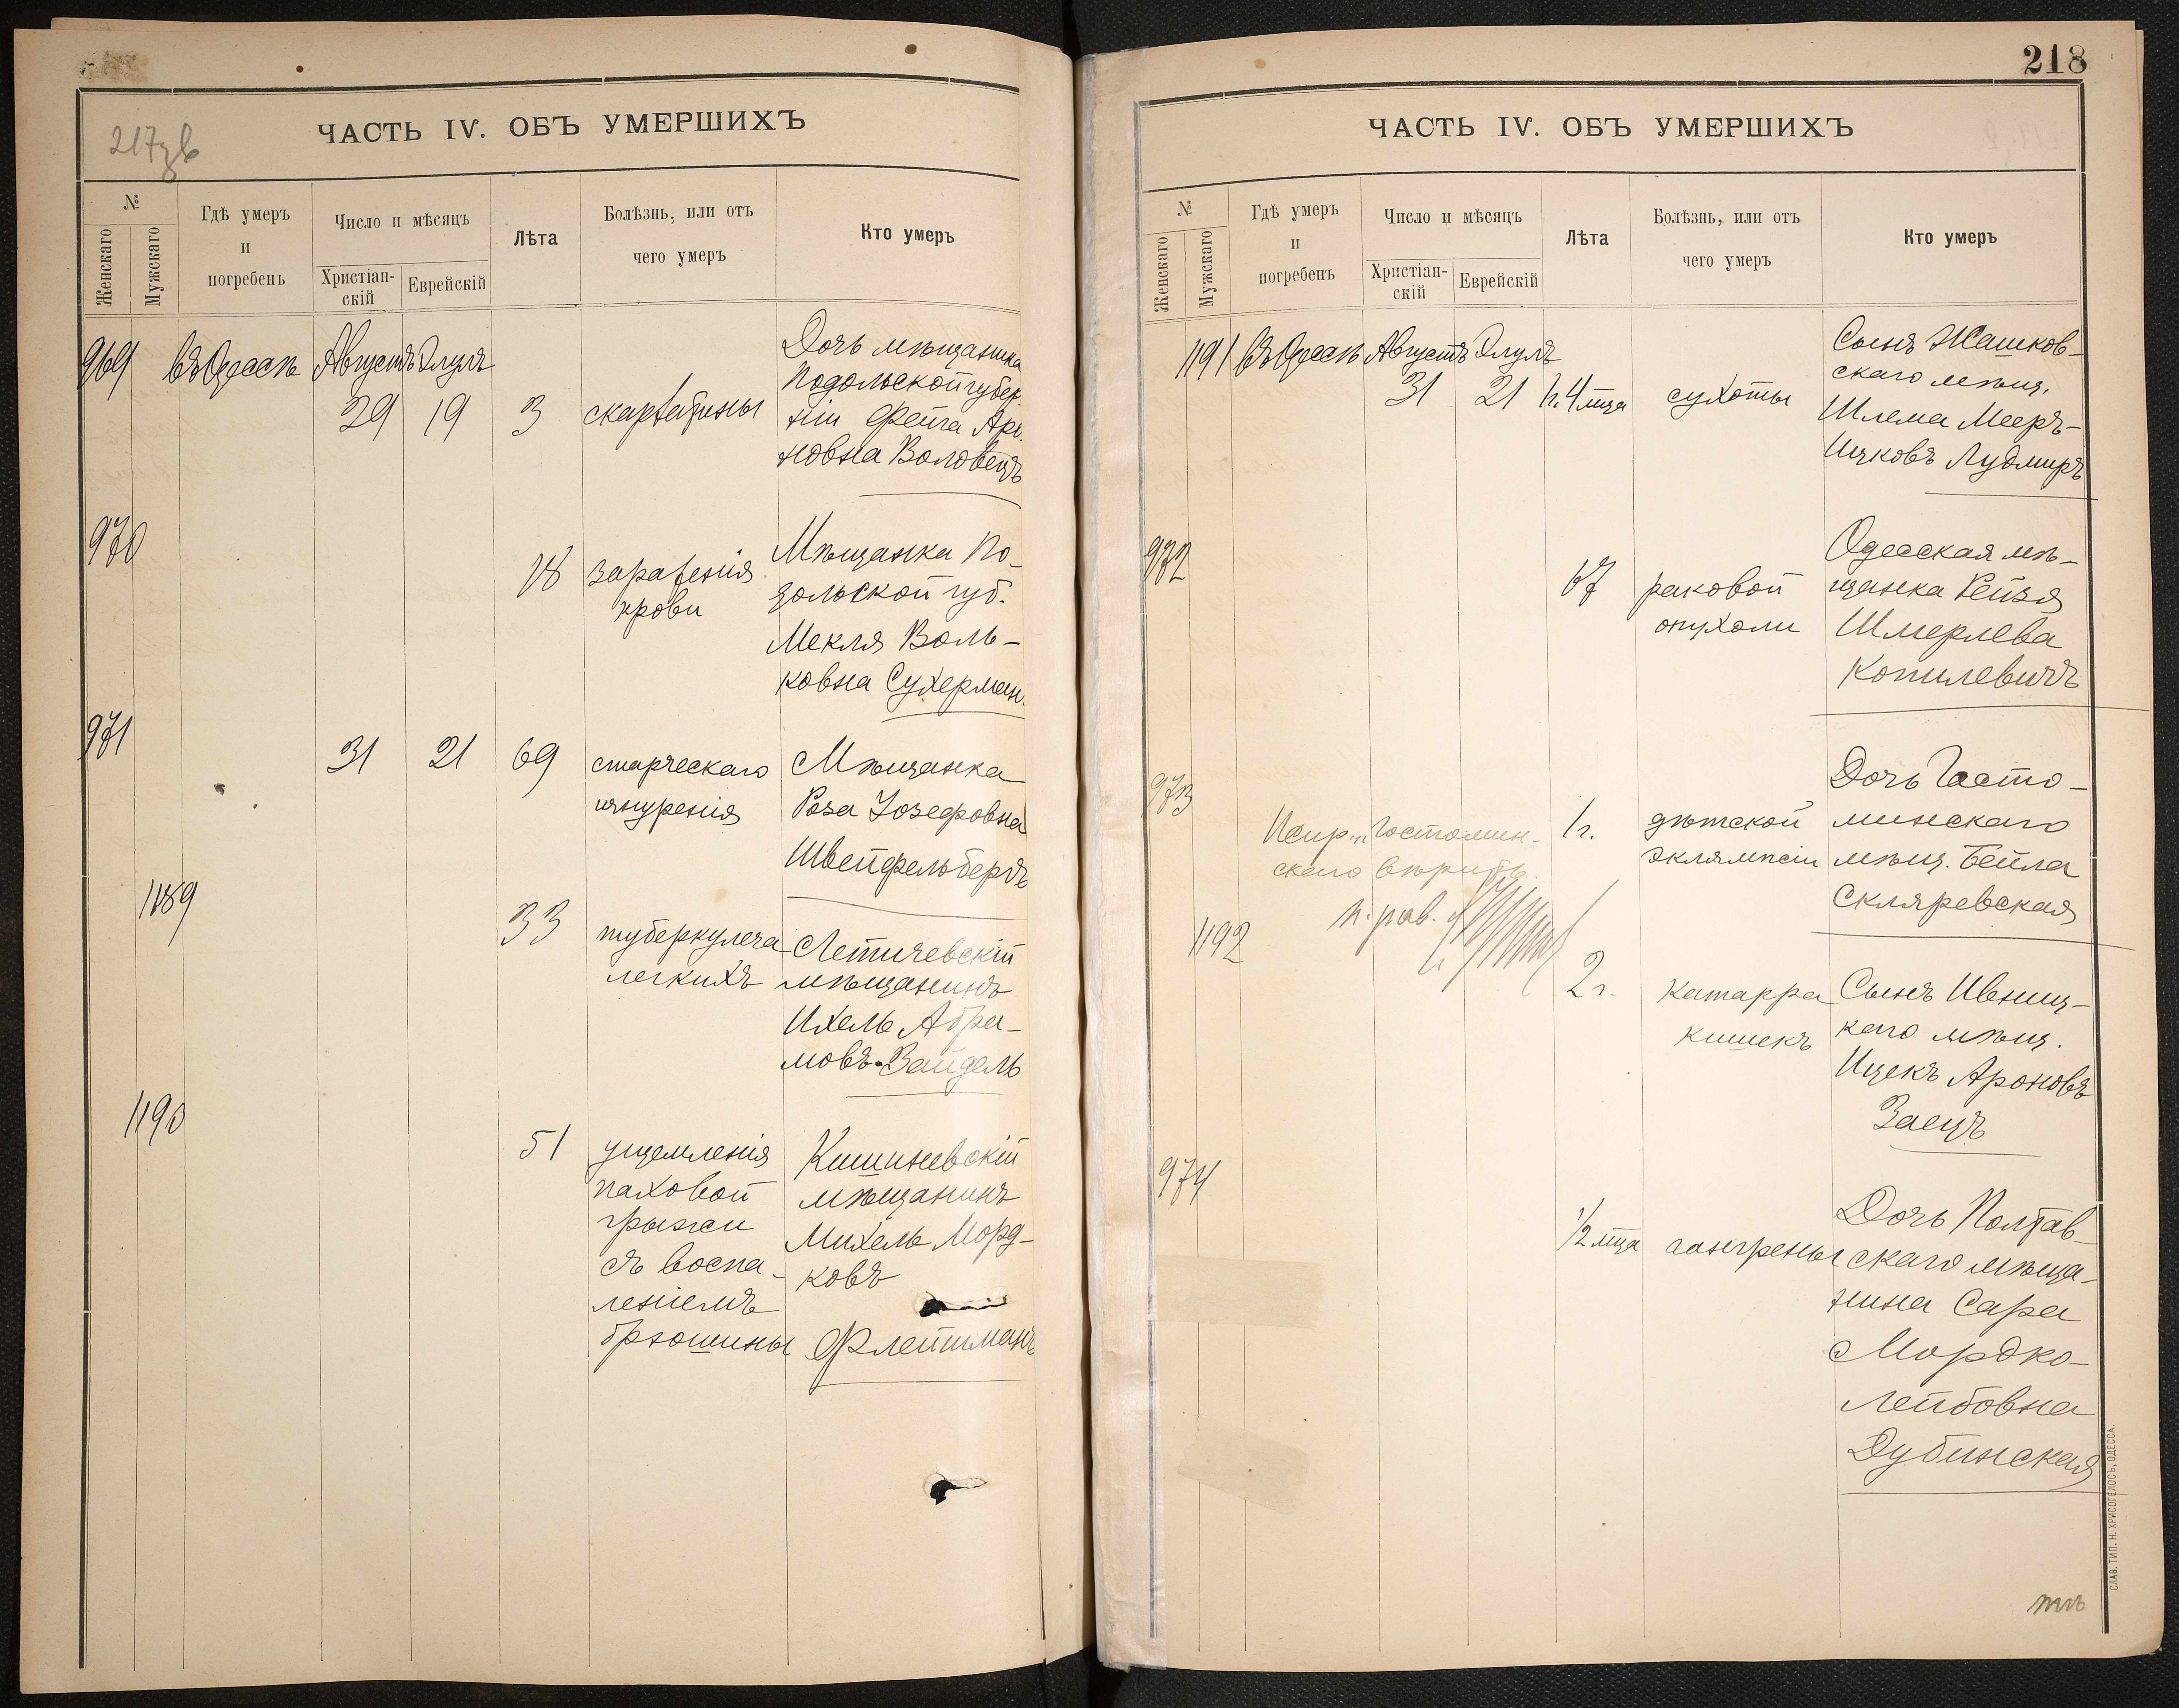 217 зв
ЧАСТЬ IV. ОБЪ УМЕРШИХЪ
№
Женскаго
Мужскаго
Гдѣ умеръ
и
погребенъ
Число и мѣсяцъ
Христіан-
скій
Еврейскій
Лѣта
Болѣзнь, или отъ
чего умеръ
Кто умеръ
969 въ Одессѣ Августъ Элулъ
29 19 3 скарлатины
Дочь мѣщанина
Подольской губер-
ніи Фейга Аро-
новна Воловецъ
970
18 зараженія
крови
Мѣщанка По-
дольской губ.
Мекля Воль-
ковна Сухерман
971
31 21 69 старческаго
изнуренія
Мѣщанка
Роза Іозефовна
Швейфельбергъ
1189
33 туберкулеза
легкихъ
Летичевскій
мѣщанинъ
Ихель Абра-
мовъ Зайдель
1190
51 ущемленія
паховой
грыжи
съ воспа-
леніемъ
брюшины
Кишиневскій
мѣщанинъ
Михель Морд-
ковъ
Флейшманъ
218
ЧАСТЬ IV. ОБЪ УМЕРШИХЪ
№
Женскаго
Мужскаго
Гдѣ умеръ
и
погребенъ
Число и мѣсяцъ
Христіан-
скій
Еврейскій
Лѣта
Болѣзнь, или отъ
чего умеръ
Кто умеръ
1191 въ Одессѣ Августъ Элулъ
31 21 1г. 4 мца сухоты
Сынъ Жашков-
скаго мѣщ.
Шлема Мееръ-
Ицковъ Лудмиръ
972
67 раковой
опухоли
Одесская мѣ-
щанка Рейзя
Шмерлева
Копилевичъ
973
Испр. „Гостомин-
скаго" вѣрить
п. рав.
1г. дѣтской
эклямпсіи
Дочь Госто-
минскаго
мѣщ. Бейла
Скляревская
1192
2г. катарра
кишекъ
Сынъ Ивниц-
каго мѣщ.
Ицекъ Ароновъ
Заецъ
974
1/2 мца гангрены
Дочь Полтав-
скаго мѣща-
нина Сара
Мордко-
Лейбовна
Дубинская
СЛАВ. ТИП. Н. ХРИСОГЕЛОСЪ, ОДЕССА.